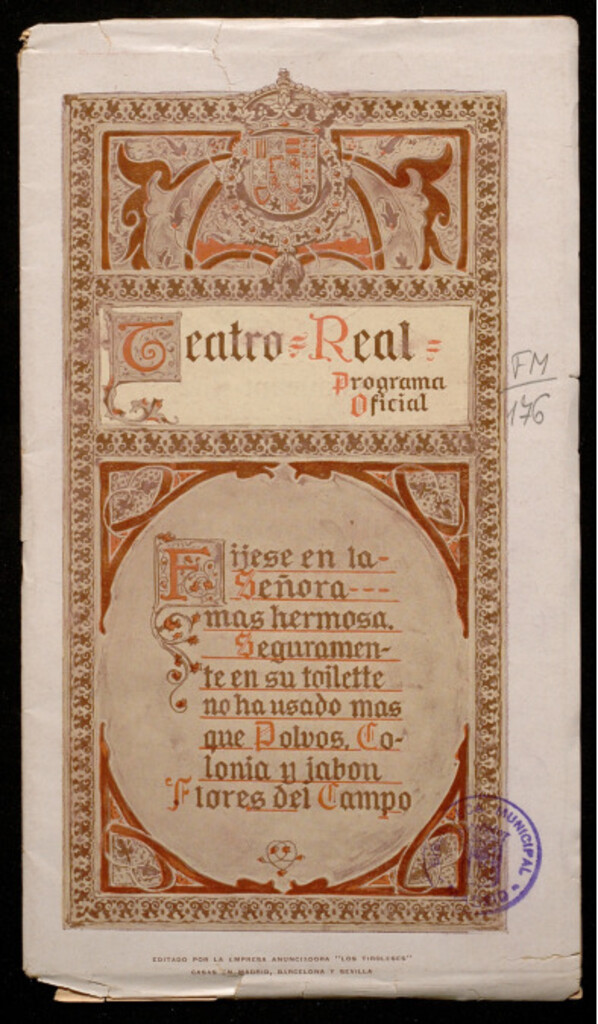 Teatro=Real=
Programa
Oficial
FM
176
Fijese en la-
Señora---
mas hermosa.
Seguramen-
te en su toilette
no ha usado mas
que Polvos, Co-
lonia y jabon
Flores del Campo
MUNICIPAL
EDITADO POR LA EMPRESA ANUNCIADORA "LOS TIROLESES"
CASAS EN MADRID, BARCELONA Y SEVILLA